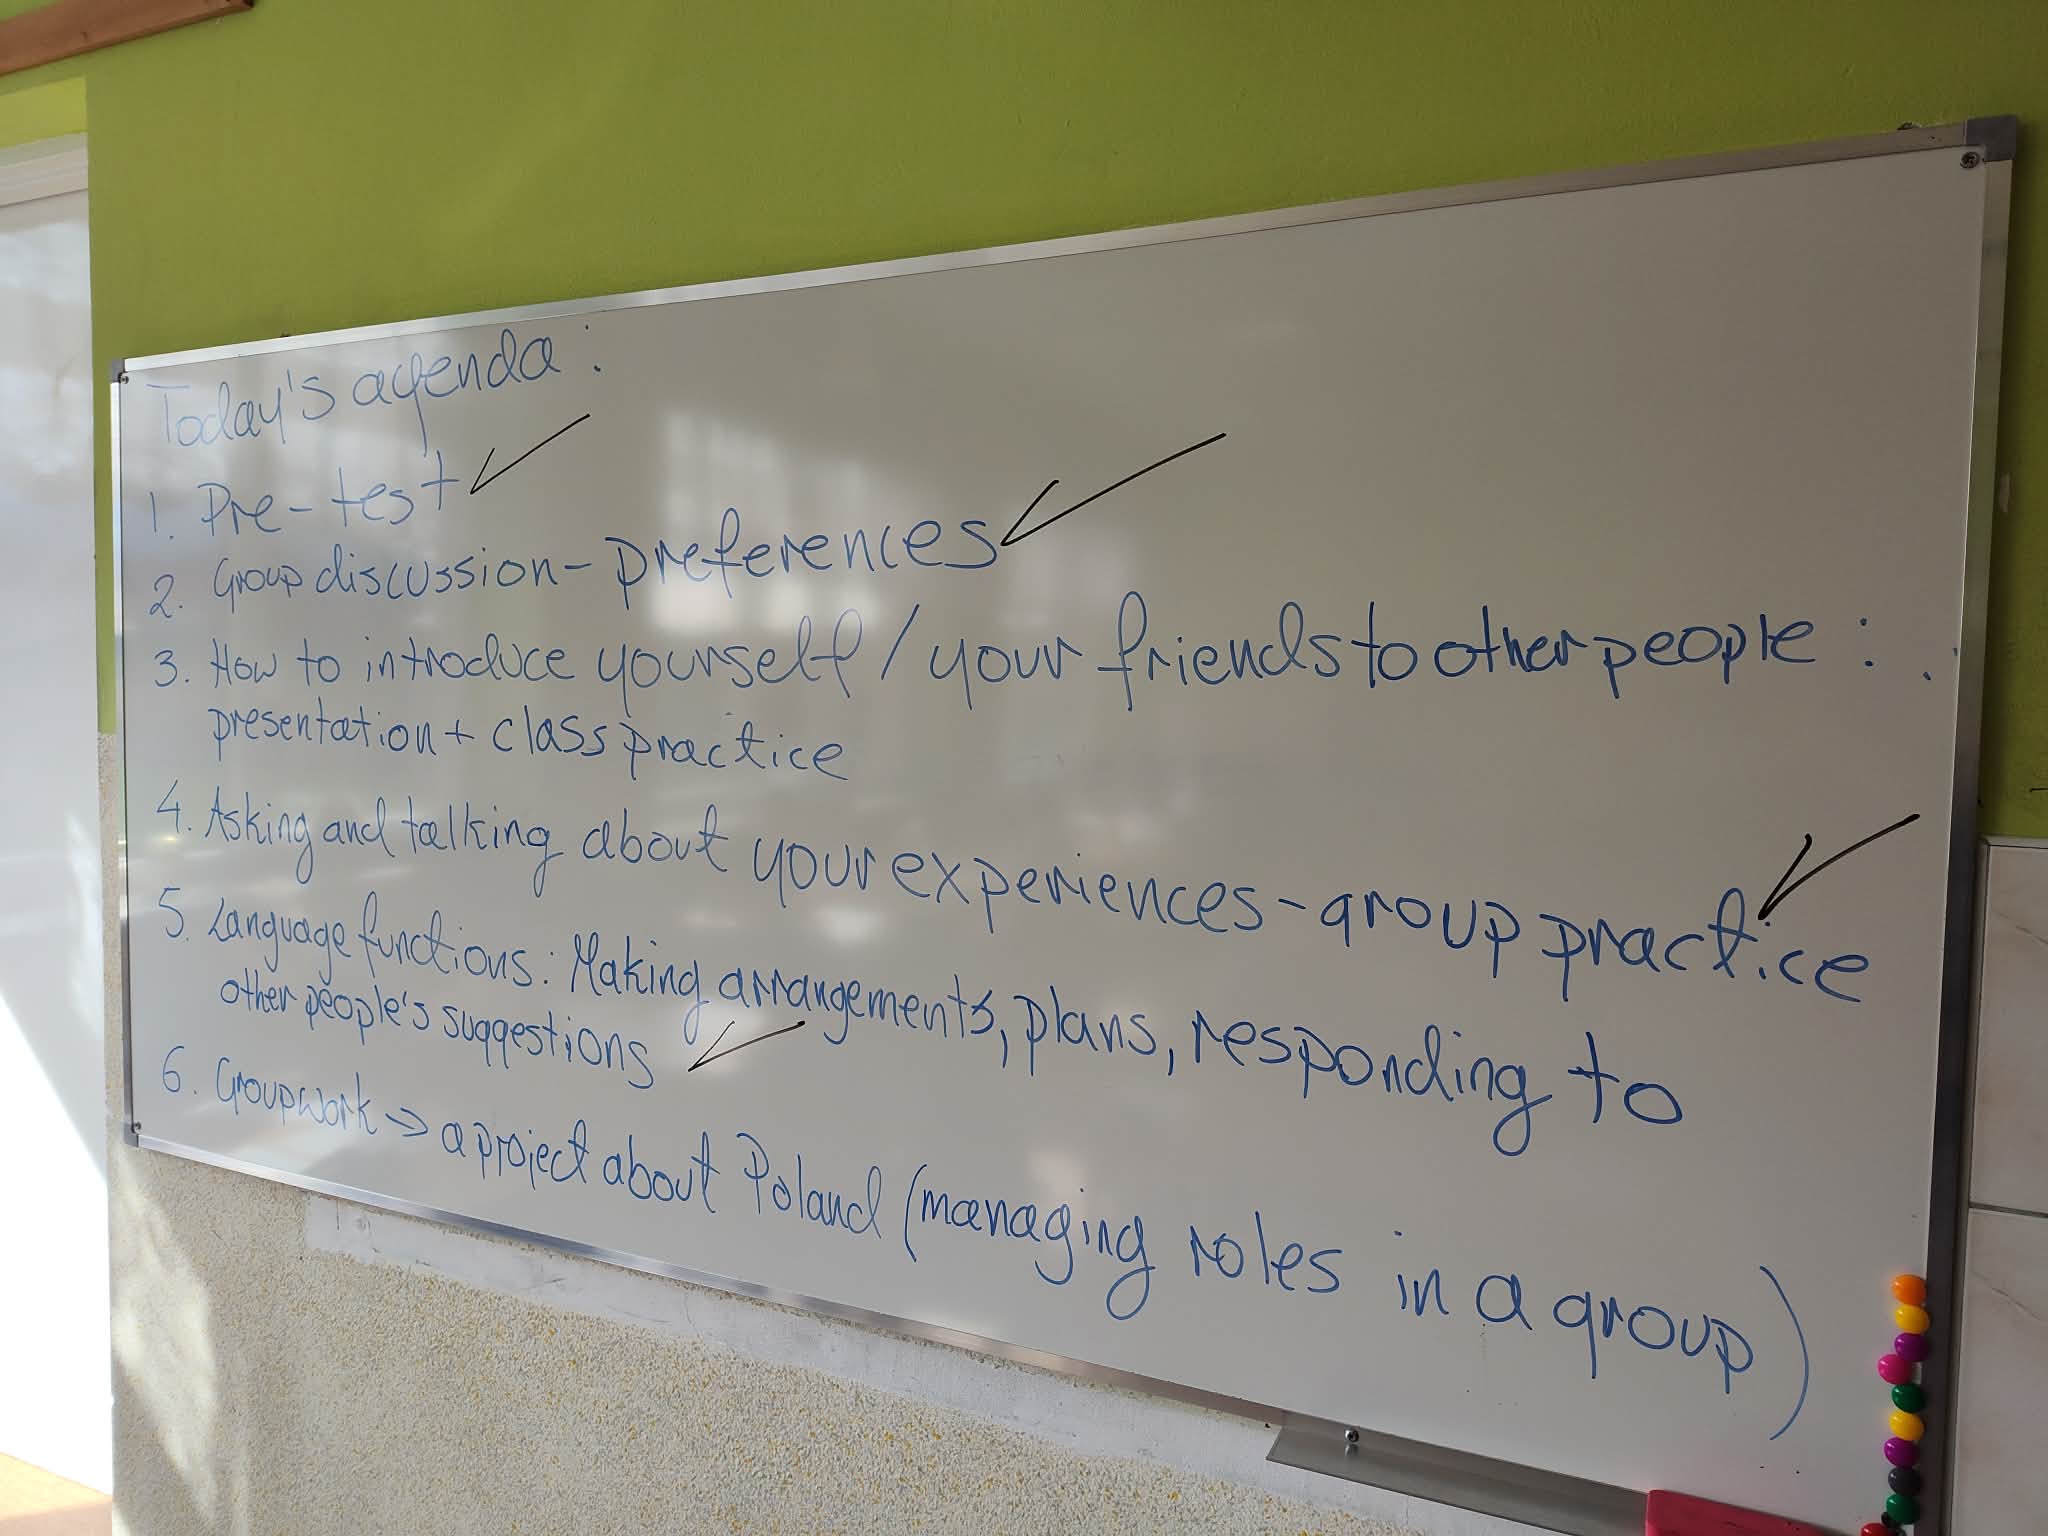 Today's agenda:
1. Pre-test ✓
2. Group discussion - preferences ✓
3. How to introduce yourself / your friends to other people:
presentation + class practice
4. Asking and talking about your experiences - group practice ✓
5. Language functions: Making arrangements, plans, responding to
other people's suggestions ✓
6. Groupwork → a project about Poland (managing roles in a group)